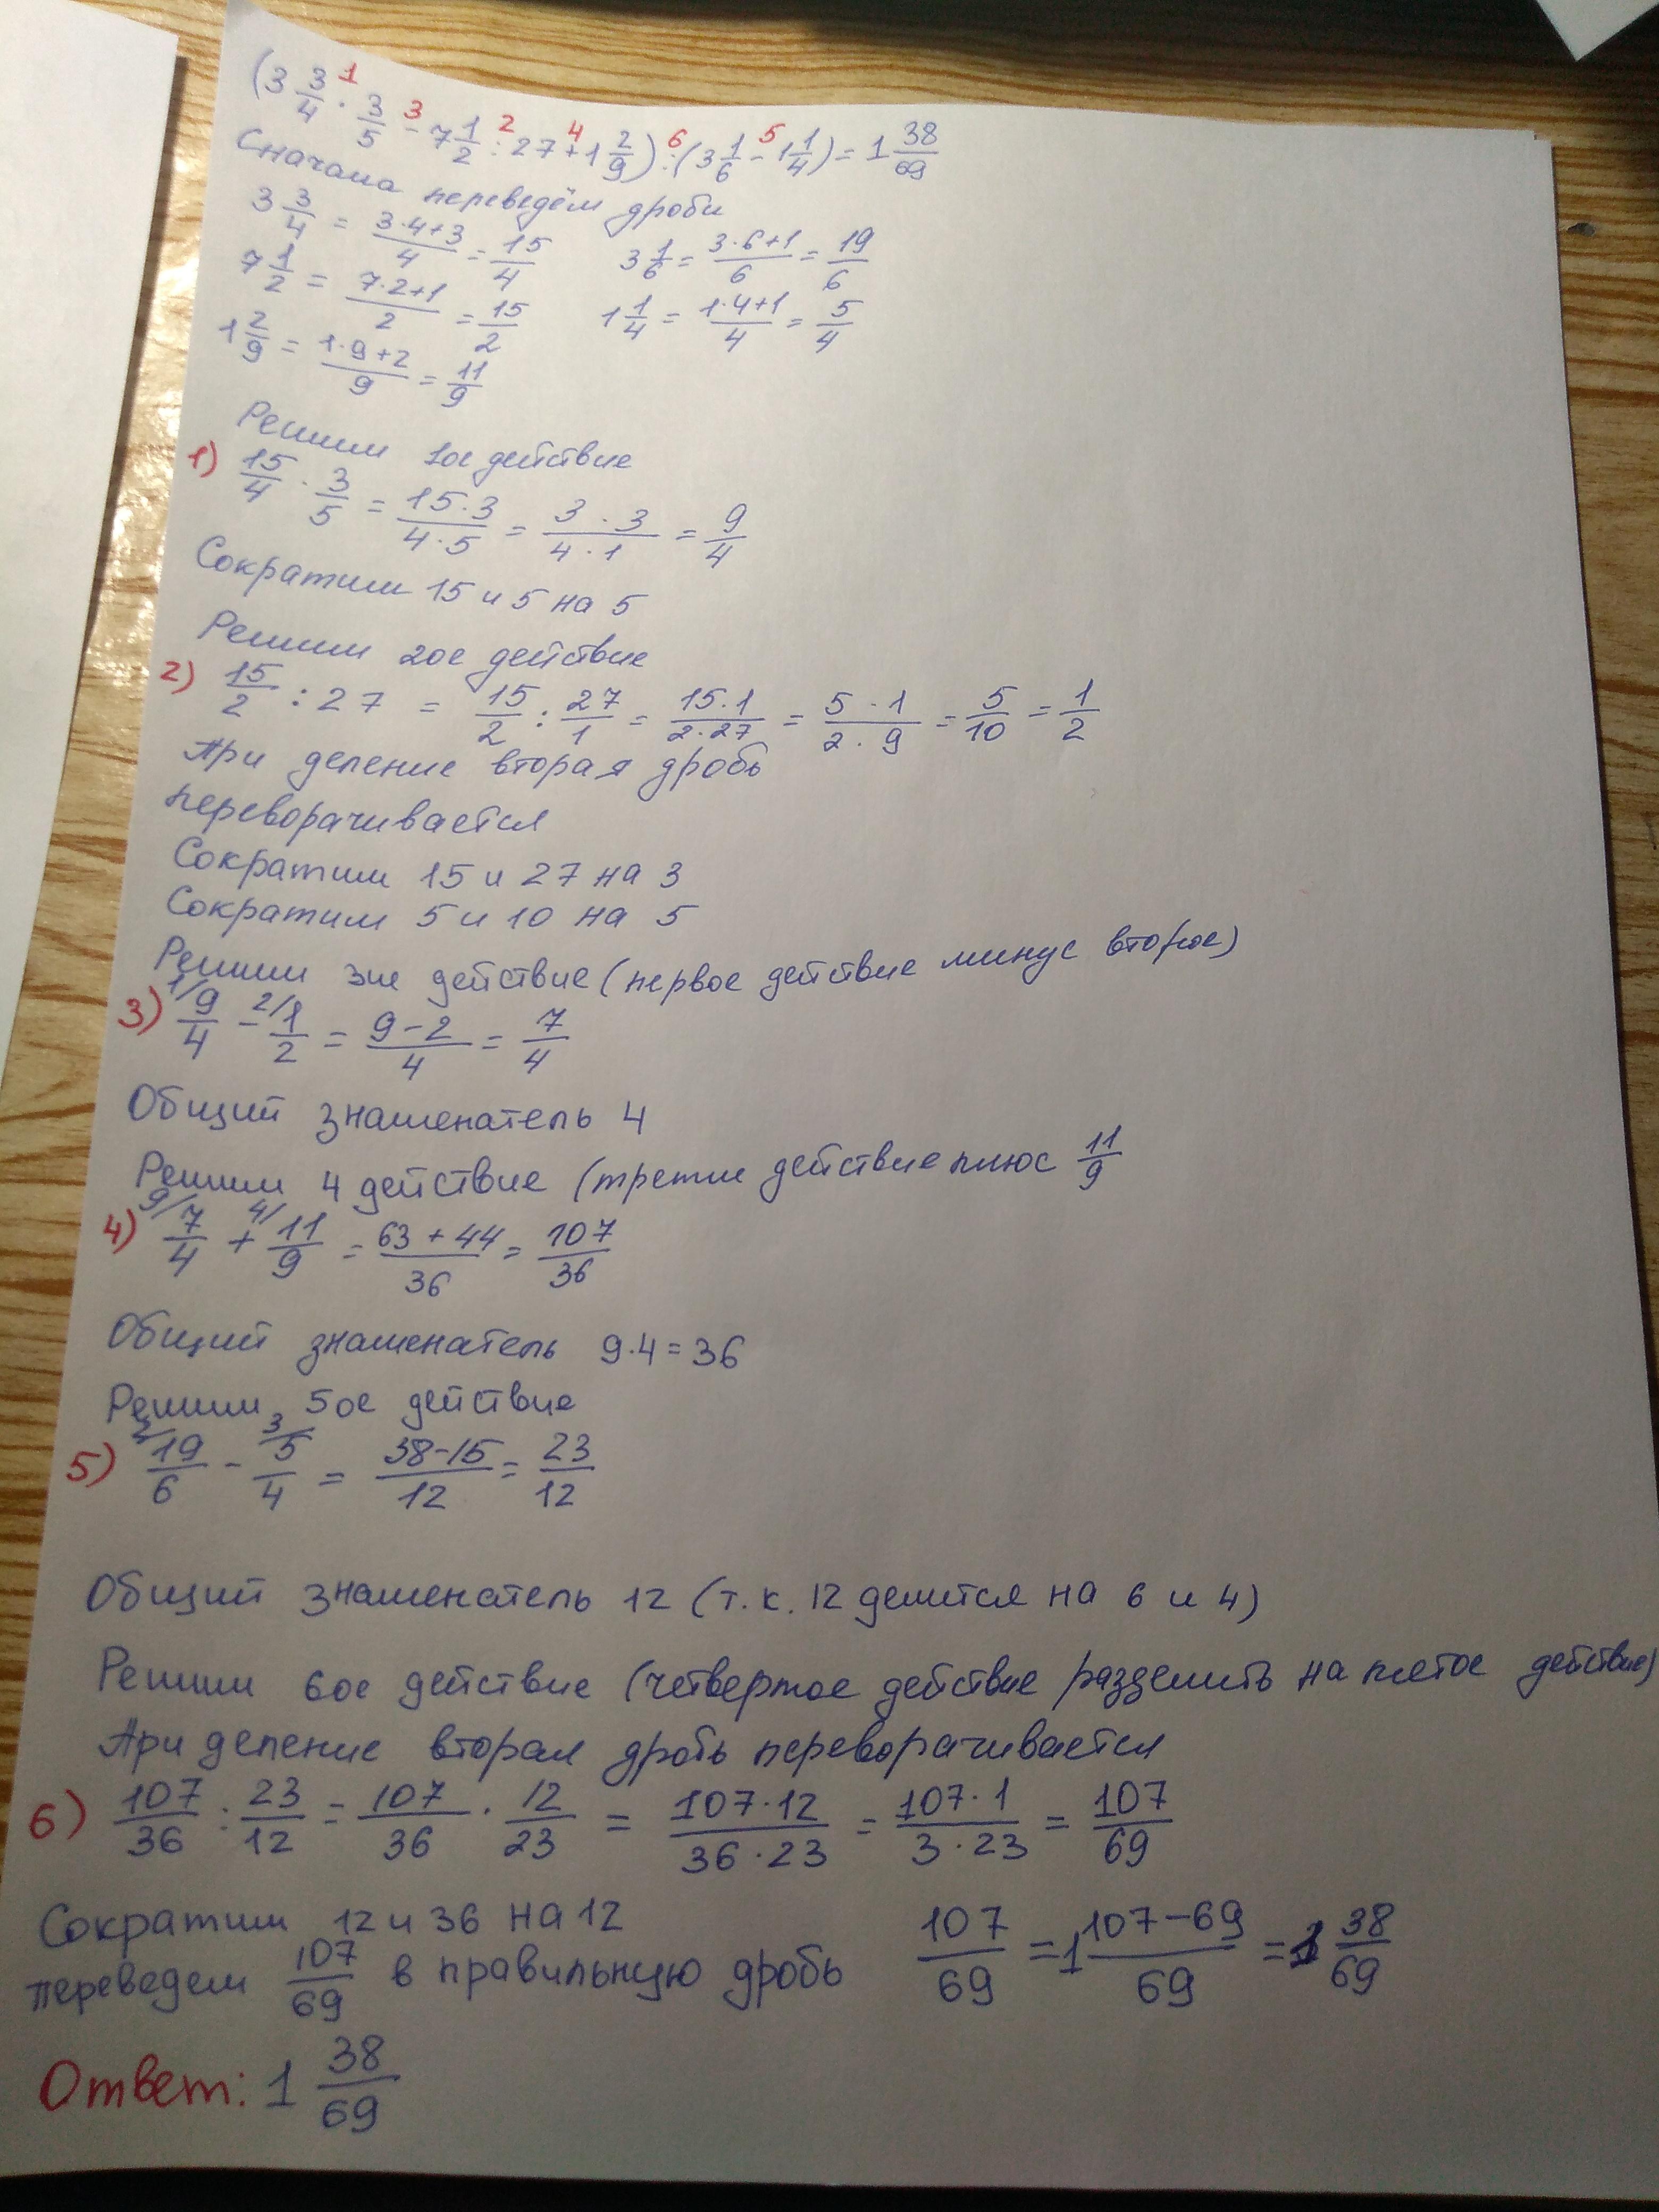 (3 3/4 · 3/5 - 7 1/2 : 27 + 1 2/9) : (3 1/6 - 1 1/4) = 1 38/69
1 3 2 4 6 5
Сначала переведём дроби
3 3/4 = (3·4+3)/4 = 15/4 3 1/6 = (3·6+1)/6 = 19/6
7 1/2 = (7·2+1)/2 = 15/2 1 1/4 = (1·4+1)/4 = 5/4
1 2/9 = (1·9+2)/9 = 11/9
Решим 1ое действие
1) 15/4 · 3/5 = (15·3)/(4·5) = (3·3)/(4·1) = 9/4
Сократим 15 и 5 на 5
Решим 2ое действие
2) 15/2 : 27 = 15/2 : 27/1 = (15·1)/(2·27) = (5·1)/(2·9) = 5/10 = 1/2
При деление вторая дробь
переворачивается
Сократим 15 и 27 на 3
Сократим 5 и 10 на 5
Решим 3ие действие (первое действие минус второе)
3) 1/ 9/4 - 2/ 1/2 = (9-2)/4 = 7/4
Общий знаменатель 4
Решим 4 действие (третие действие плюс 11/9
4) 9/ 7/4 + 4/ 11/9 = (63+44)/36 = 107/36
Общий знаменатель 9·4=36
Решим 5ое действие
5) 2/ 19/6 - 3/ 5/4 = (38-15)/12 = 23/12
Общий знаменатель 12 (т.к. 12 делится на 6 и 4)
Решим 6ое действие (четвертое действие разделить на пятое действие)
При деление вторая дробь переворачивается
6) 107/36 : 23/12 = 107/36 · 12/23 = (107·12)/(36·23) = (107·1)/(3·23) = 107/69
Сократим 12 и 36 на 12
переведем 107/69 в правильную дробь 107/69 = 1 (107-69)/69 = 1 38/69
Ответ: 1 38/69